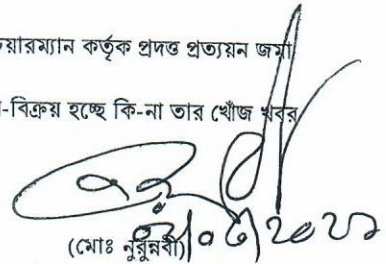 য়ারম্যান কর্তৃক প্রদত্ত প্রত্যয়ন জমা
-বিক্রয় হচ্ছে কি-না তার খোঁজ খবর
(মোঃ নুরুন্নবী)